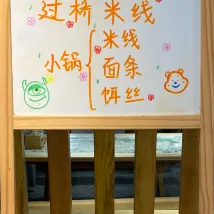 过桥米线
小锅{米线
面条
饵丝